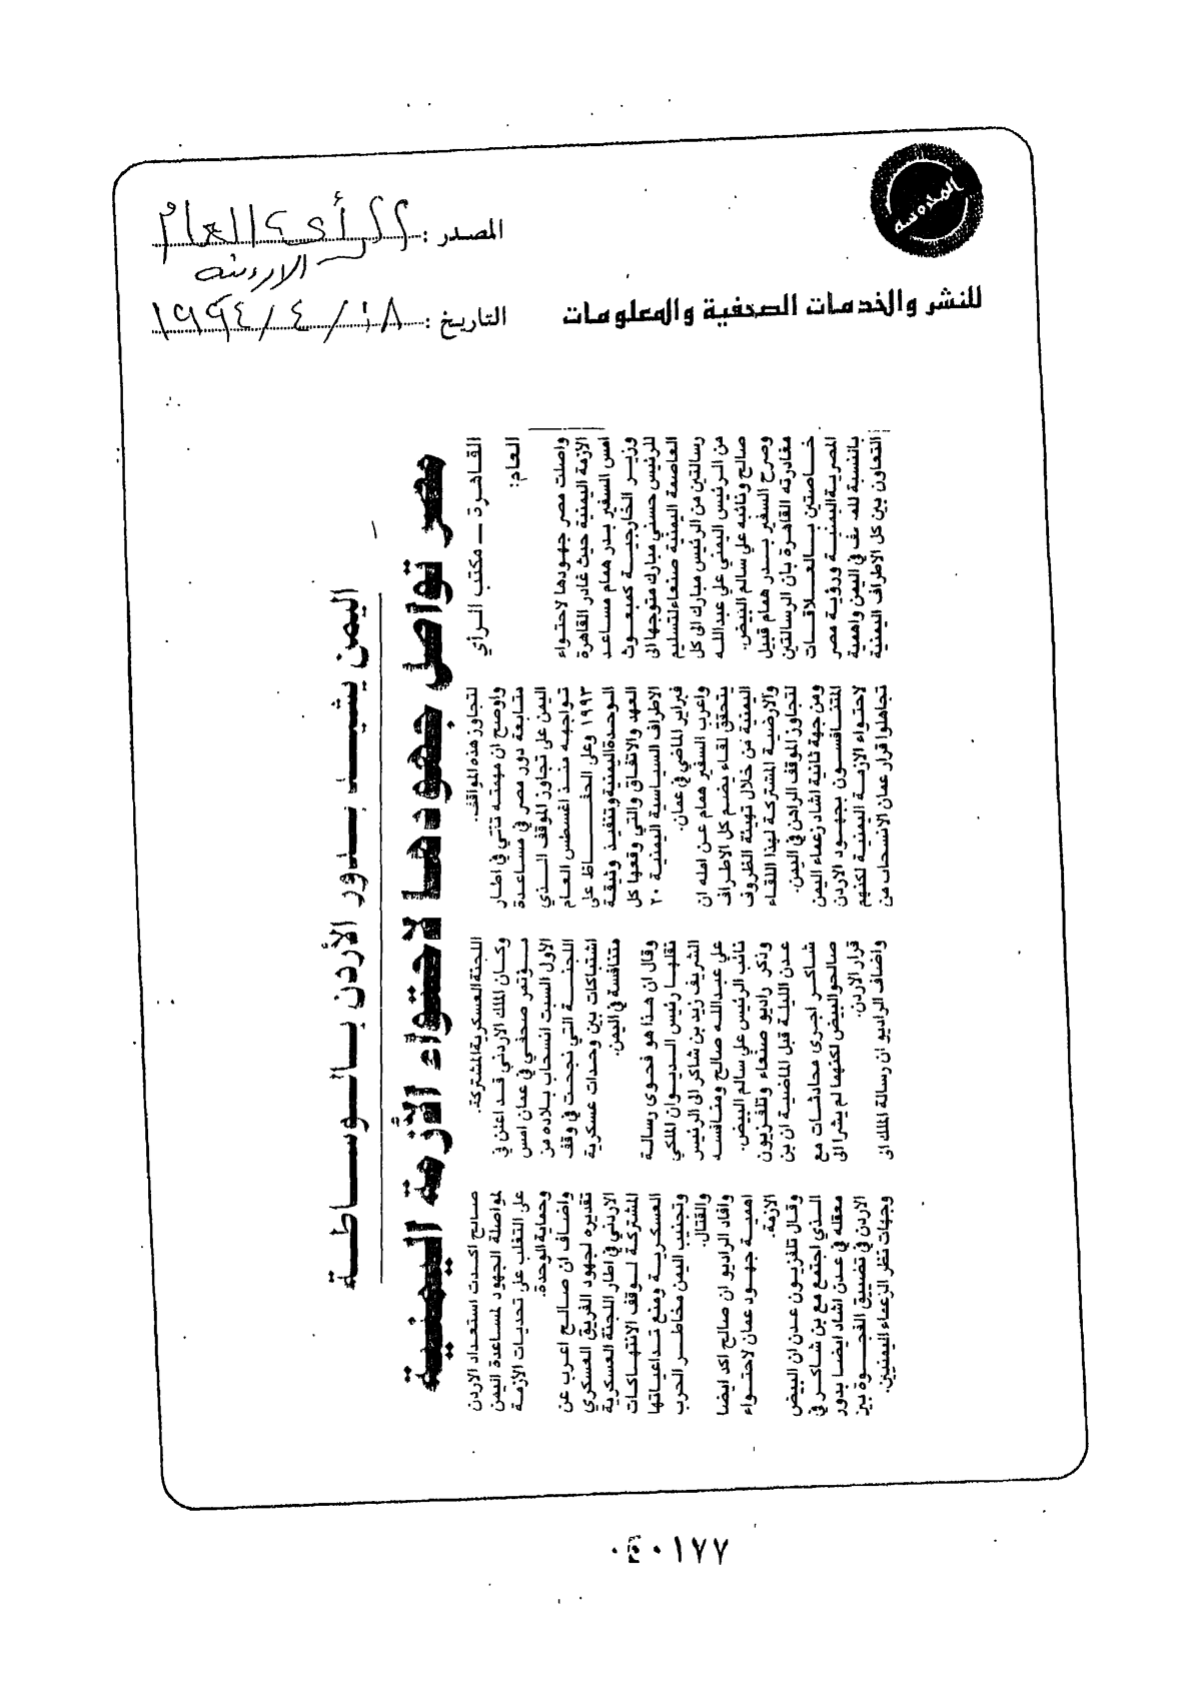 المحروسة
المصدر : الرأي العام
الاردنية
للنشر والخدمات الصحفية والمعلومات
التاريخ : ١٨ / ٤ / ١٩٩٤
اليمن يشيد بدور الأردن بالوساطة
مصر تواصل جهودها لاحتواء الأزمة اليمنية
القاهرة - مكتب الرأي
العام:
واصلت مصر جهودها لاحتواء
الأزمة اليمنية حيث غادر القاهرة
امس السفير بدر همام مساعد
وزير الخارجية كمبعوث
للرئيس حسني مبارك متوجها الى
العاصمة اليمنية صنعاء لتسليم
رسالتين من الرئيس مبارك الى كل
من الرئيس اليمني علي عبدالله
صالح ونائبه علي سالم البيض.
وصرح السفير بدر همام قبيل
مغادرته القاهرة بان الرسالتين
خاصتين بالعلاقات
المصرية اليمنية ورؤية مصر
بالنسبة للموقف في اليمن واهمية
التعاون بين كل الاطراف اليمنية
لتجاوز هذه المواقف.
واوضح ان مهمته تأتي في اطار
متابعة دور مصر في مساعدة
اليمن على تجاوز الموقف الذي
تواجهه منذ اغسطس العام
١٩٩٣ وعلى الحفاظ على
الوحدة اليمنية وتنفيذ وثيقة
العهد والاتفاق والتي وقعها كل
الاطراف السياسية اليمنية ٢٠
فبراير الماضي في عمان.
واعرب السفير همام عن امله ان
يتحقق لقاء يضم كل الاطراف
اليمنية من خلال تهيئة الظروف
والارضية المشتركة لهذا اللقاء
لتجاوز الموقف الراهن في اليمن.
ومن جهة ثانية اشاد زعماء اليمن
المتنافسون بجهود الاردن
لاحتواء الازمة اليمنية لكنهم
تجاهلوا قرار عمان الانسحاب من
اللجنة العسكرية المشتركة.
وكان الملك الاردني قد اعلن في
مؤتمر صحفي في عمان امس
الأول السبت انسحاب بلاده من
اللجنة التي نجحت في وقف
اشتباكات بين وحدات عسكرية
متنافسة في اليمن.
وقال ان هذا هو فحوى رسالة
نقلها رئيس الديوان الملكي
الشريف زيد بن شاكر الى الرئيس
علي عبدالله صالح ومنافسه
نائب الرئيس علي سالم البيض.
وذكر راديو صنعاء وتلفزيون
عدن الليلة قبل الماضية ان بن
شاكر اجرى محادثات مع
صالح والبيض لكنهما لم يشيرا الى
قرار الاردن.
واضاف الراديو ان رسالة الملك الى
صالح اكدت استعداد الاردن
لمواصلة الجهود لمساعدة اليمن
على التغلب على تحديات الأزمة
وحماية الوحدة.
واضاف ان صالح اعرب عن
تقديره لجهود الفريق العسكري
الاردني في اطار اللجنة العسكرية
المشتركة لوقف الانتهاكات
العسكرية ومنع تداعياتها
وتجنيب اليمن مخاطر الحرب
والقتال.
وافاد الراديو ان صالح اكد ايضا
اهمية جهود عمان لاحتواء
الأزمة.
وقال تلفزيون عدن ان البيض
الذي اجتمع مع بن شاكر في
معقله في عدن اشاد ايضا بدور
الاردن في تضييق الفجوة بين
وجهات نظر الزعماء اليمنيين.
٠١٧٧